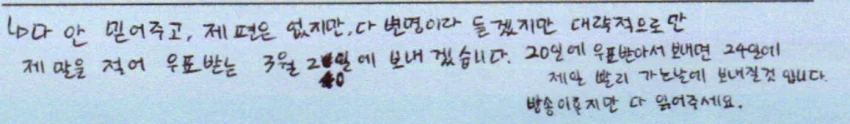 ↳다 안 믿어주고, 제 편은 없지만, 다 변명이라 듣겠지만 대략적으로만
제 말을 적어 우표받는 3월 20일에 보내겠습니다. 20일에 우표받아서 보내면 24일에
제일 빨리 가는날에 보내질것 입니다.
방송이후지만 다 읽어주세요.